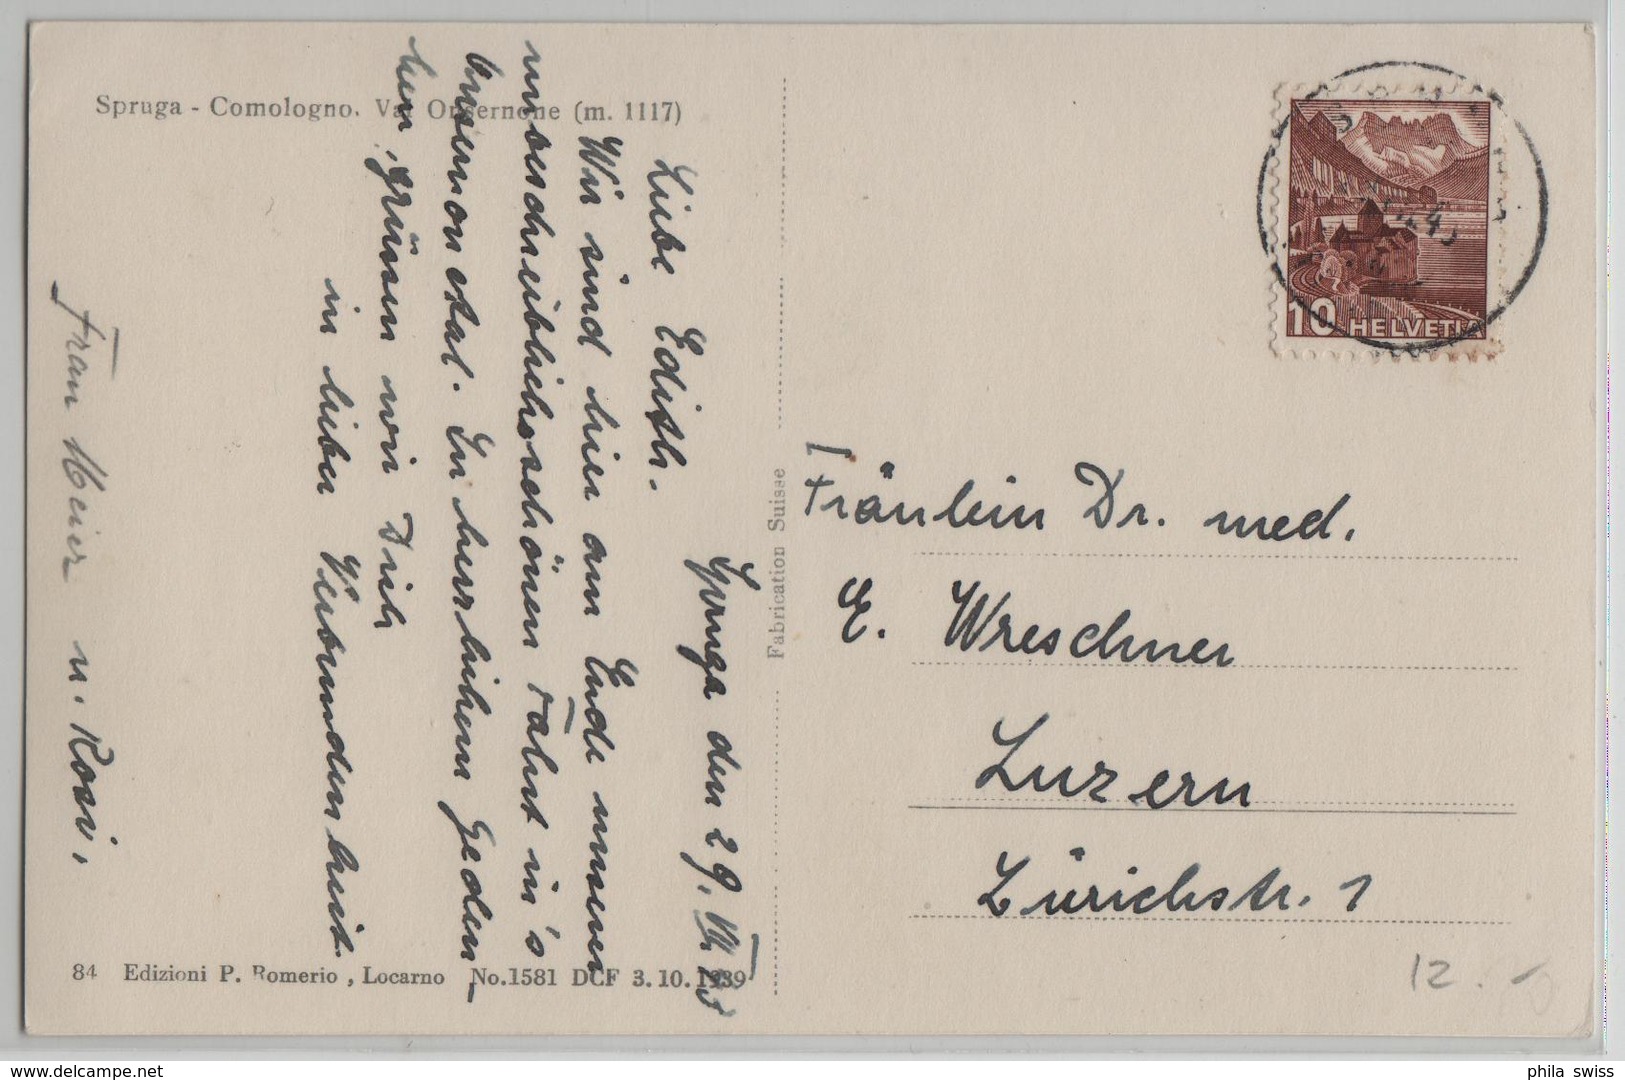 Spruga - Comologno. Val Onsernone (m. 1117)
Spruga den 29. VII. 43
Liebe Edith.
Wir sind hier am Ende unserer
unbeschreiblich schönen Fahrt in's
Onsernonetal. In herzlichem Geden-
ken grüssen wir Dich
in lieber Verbundenheit.
Frau Meier u. Rosi.
Fabrication Suisse
84 Edizioni P. Romerio, Locarno No. 1581 DCF 3.10.1939
10 HELVETIA
Fräulein Dr. med.
E. Wreschner
Luzern
Zürichstr. 1
12.-
phila swiss